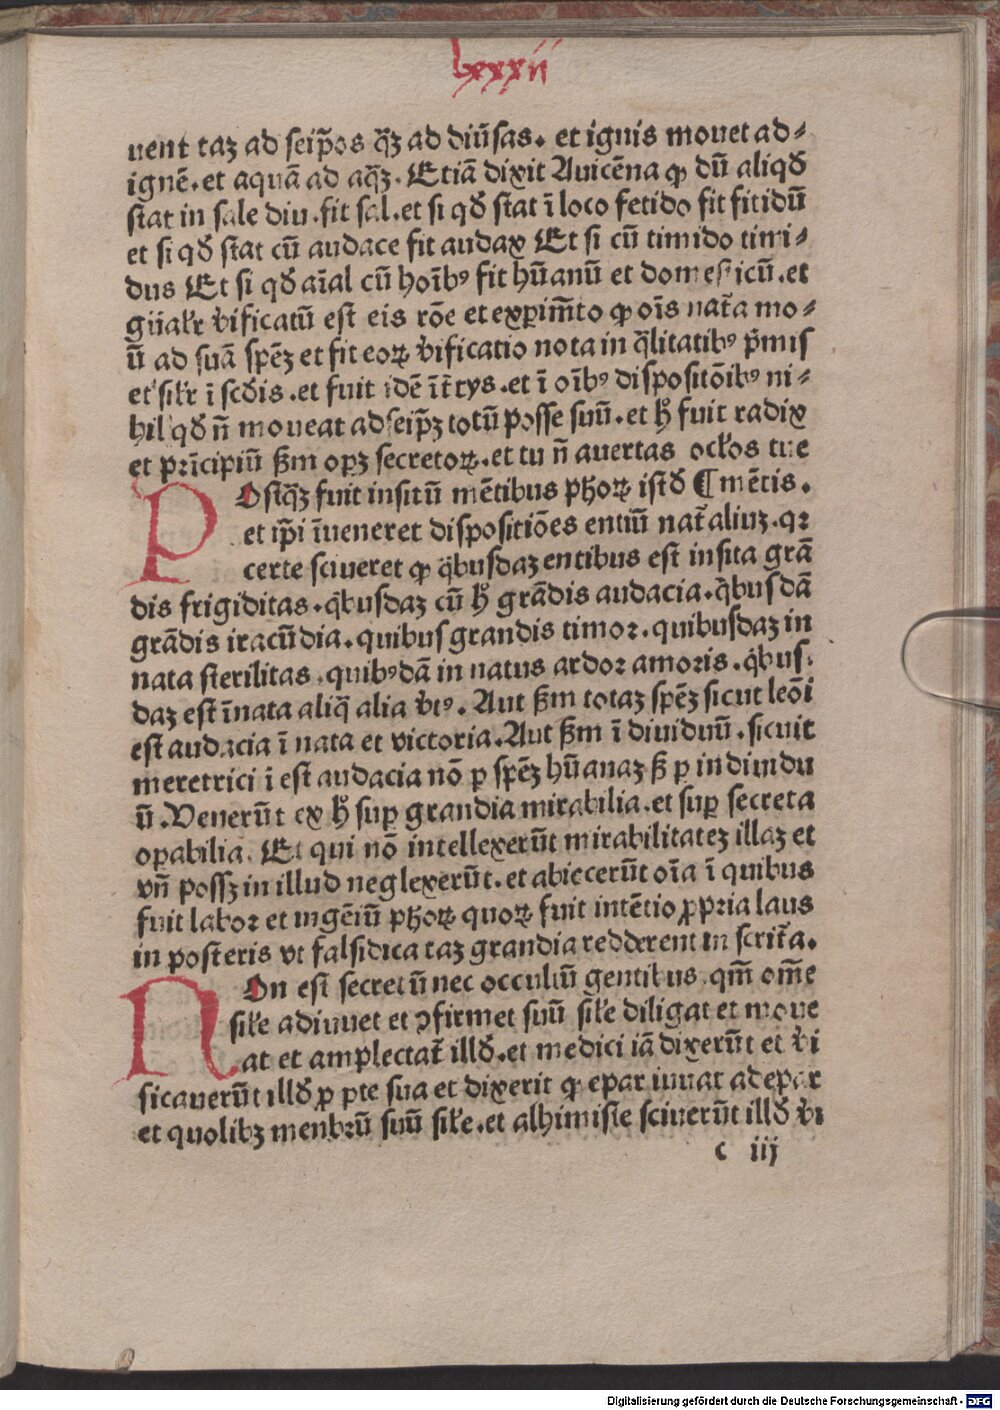 lxxxii
uent taȝ ad seip̄os q̄ȝ ad diũsas. et ignis mouet ad⸗
ignē. et aquā ad aq̄ȝ. Etiā dixit Auicēna ꝙ dū aliqđ
stat in sale diu. fit sal. et si qđ stat ī loco fetido fit fitidū
et si qđ stat cū audace fit audax Et si cū timido timi⸗
dus Et si qđ aīal cū hoībꝰ fit hūanū et domesticū. et
gñalr̄ v̄ificatū est eis rōe et exꝑim̄to ꝙ oīs nat̄a mo⸗
ū ad suā spēȝ et fit eoꝝ v̄ificatio nota in q̄litatibꝰ p̄mis
et silr̄ ī scđis. et fuit idē īt̄rys. et ī oībꝰ dispositōibꝰ ni⸗
hil qđ n̄ moueat ad seip̄ȝ totū posse suū. et ħ fuit radix
et prīcipiū ẜm opꝫ secretoꝝ. et tu n̄ auertas ocl̄os tue
Ostq̄ȝ fuit insitū mētibus pħoꝝ istđ ¶ mētis.
P et ip̄i īueneret dispositiōes entiū nat̄aliuȝ. qꝛ
certe sciueret ꝙ q̄busdaȝ entibus est insita grā
dis frigiditas. q̄busdaȝ cū ħ grādis audacia. q̄busdā
grādis iracūdia. quibus grandis timoꝛ. quibusdaȝ in
nata sterilitas. quibꝰdā in natus ardoꝛ amoꝛis. q̄bus⸗
daȝ est īnata aliq̄ alia v̄tꝰ. Aut ẜm totaȝ spēȝ sicut leōi
est audacia ī nata et victoria. Aut ẜm ī diuiduū. sicuit
meretrici ī est audacia nō ꝑ spēȝ hūanaȝ ẜ ꝑ indiuidu
ū. Venerūt ex ħ suꝑ grandia mirabilia. et suꝑ secreta
oꝑabilia. Et qui nō intellexerūt mirabilitateȝ illaȝ et
vn̄ possȝ in illud neglexerūt. et abiecerūt oīa ī quibus
fuit laboꝛ et ingēiū pħoꝝ quoꝝ fuit intētio ꝓpria laus
in posteris vt falsidica taȝ grandia redderent in script̄a.
N On est secretū nec occultū gentibus. qm̄ om̄e
sil̄e adiuuet et ↄfirmet suū sil̄e diligat et moue
at et amplectat̄ illđ. et medici iā dixerūt et v̄i
ficauerūt illđ ꝓ pte sua et dixerit ꝙ epar iuuat ad epar
et quolibȝ menbꝛū suū sil̄e. et alhimiste sciuerūt illđ v̄i
c iij
Digitalisierung gefördert durch die Deutsche Forschungsgemeinschaft - DFG